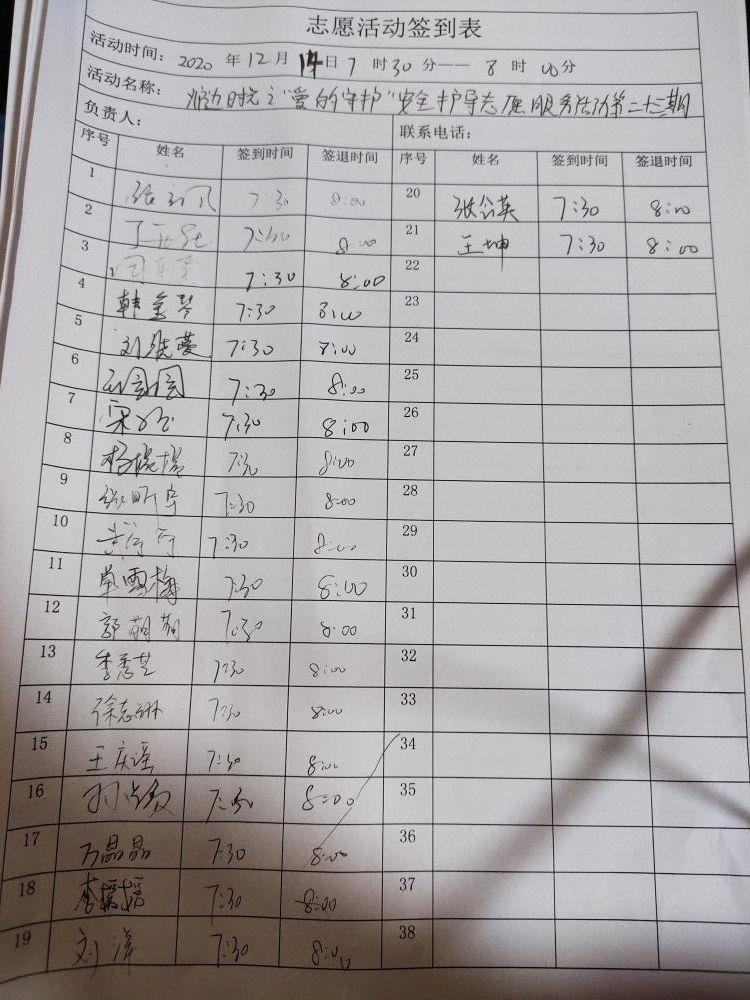 志愿活动签到表
活动时间： 2020 年 12 月 14 日 7 时 30 分—— 8 时 00 分
活动名称： 之“爱的守护”安全护导志愿服务活动第二十三期
负责人： 联系电话：
序号 姓名 签到时间 签退时间 序号 姓名 签到时间 签退时间
1 7:30 8:00 20 张公英 7:30 8:00
2 7:30 8:00 21 王坤 7:30 8:00
3 7:30 8:00 22
4 韩金琴 7:30 8:00 23
5 刘晓蔓 7:30 8:00 24
6 7:30 8:00 25
7 宋 7:30 8:00 26
8 杨瑞瑞 7:30 8:00 27
9 张明宇 7:30 8:00 28
10 7:30 8:00 29
11 雪梅 7:30 8:00 30
12 郭萌萌 7:30 8:00 31
13 李秀芝 7:30 8:00 32
14 徐志琳 7:30 8:00 33
15 王庆瑶 7:30 8:00 34
16 7:30 8:00 35
17 万晶晶 7:30 8:00 36
18 李媛媛 7:30 8:00 37
19 刘洋 7:30 8:00 38